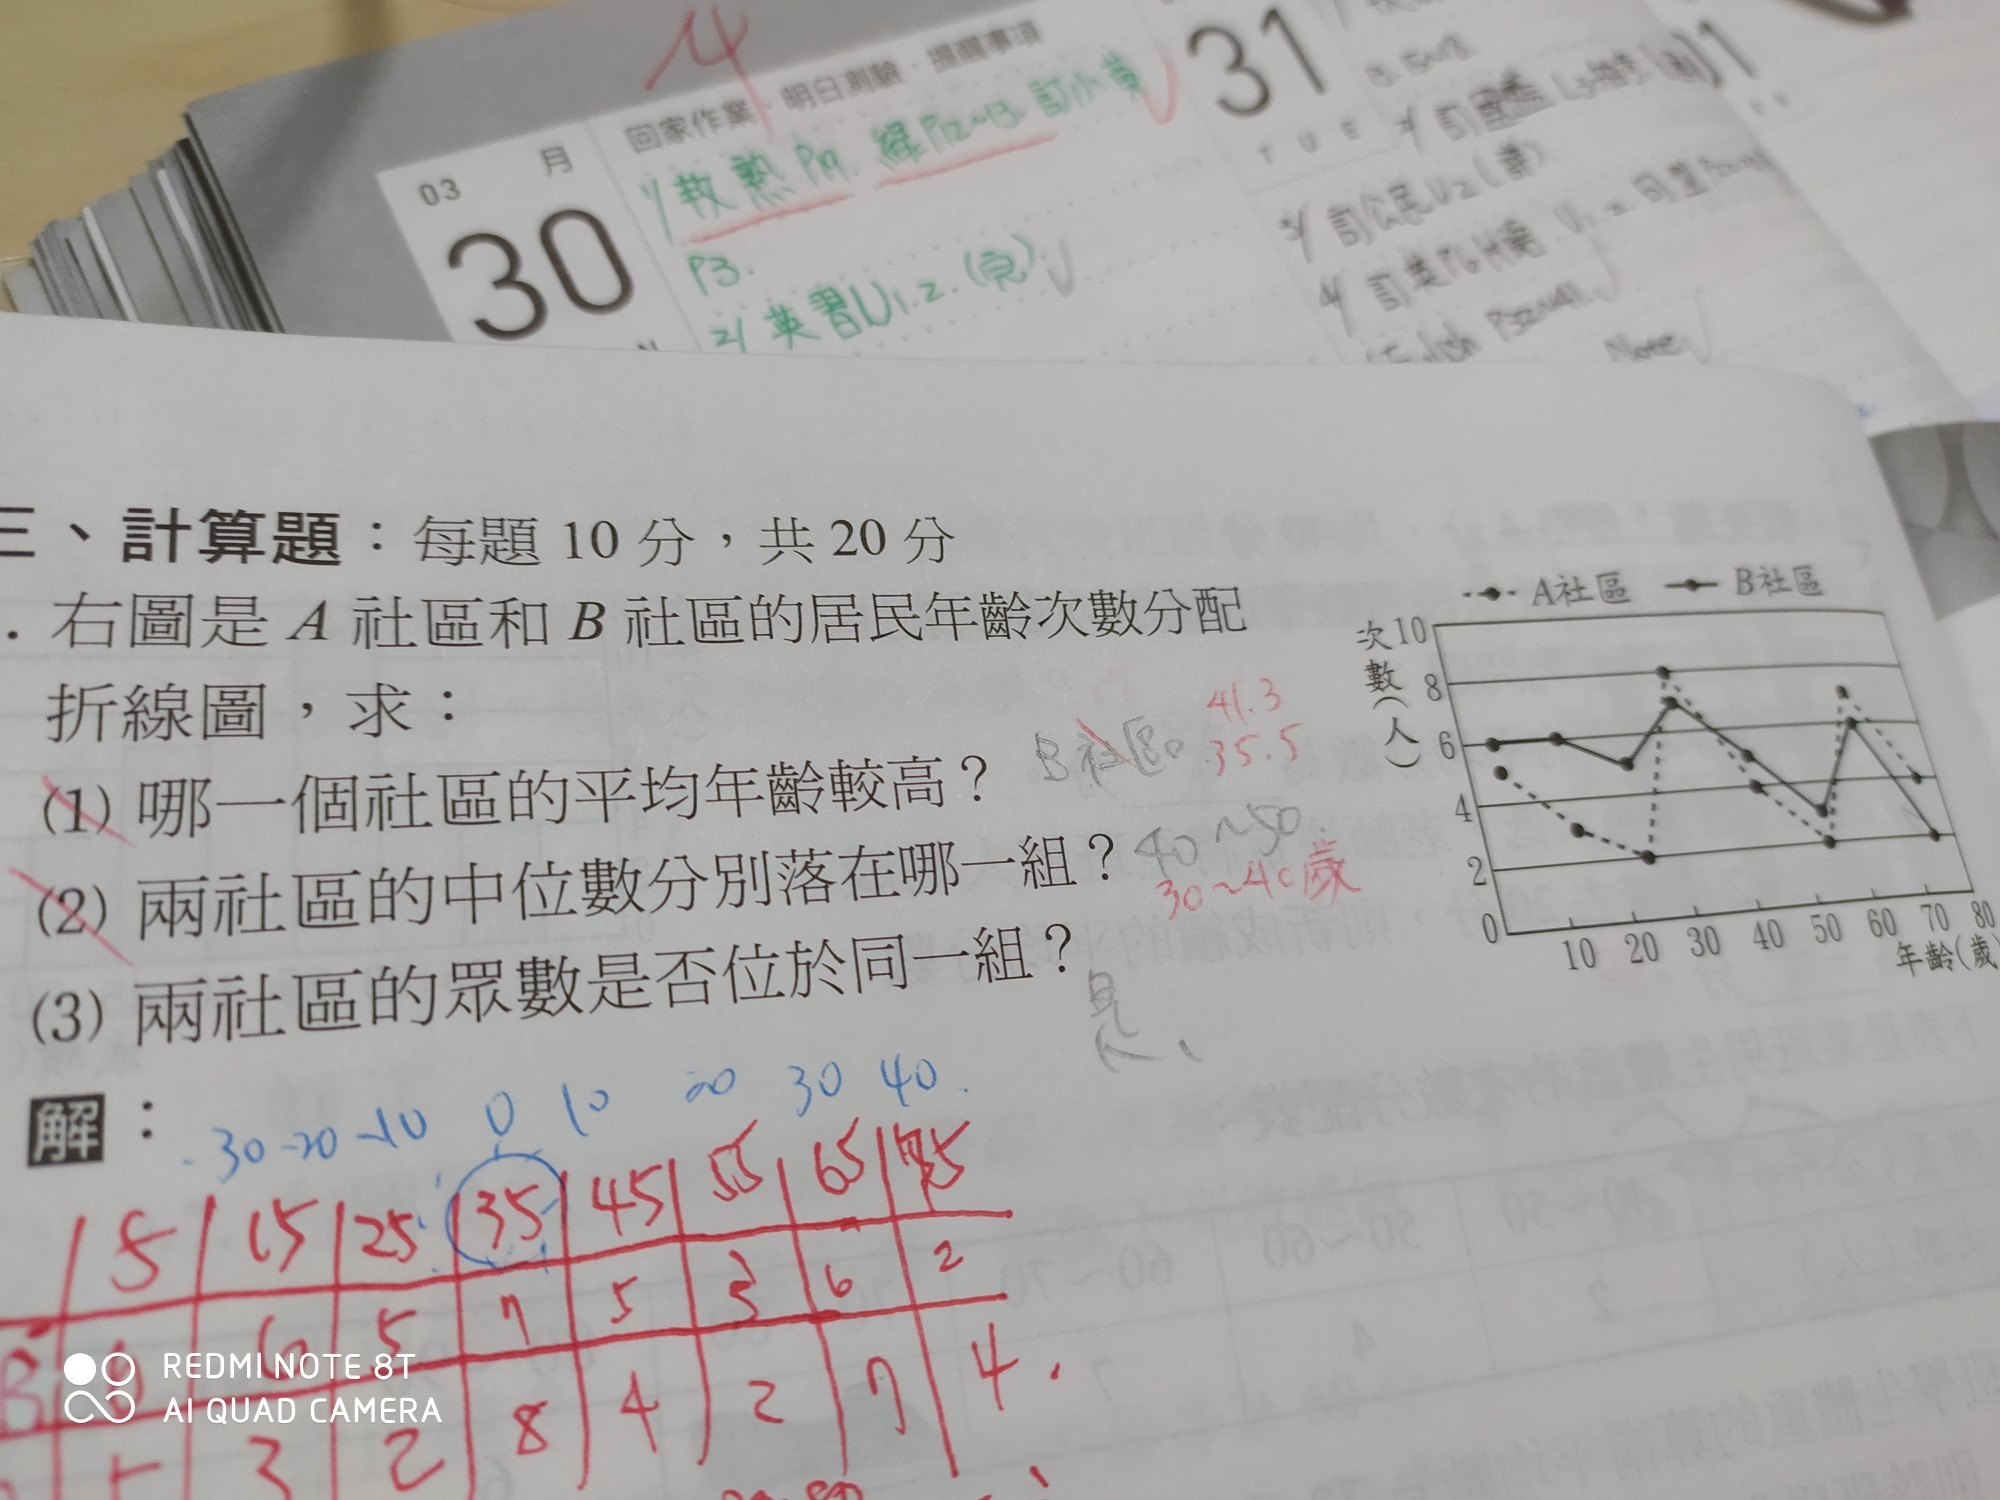 4
回家作業・明日測驗・提醒事項
03 月
30
1/ 教 熟 P19. 綠P12~13. 訂小黃
P3.
2/ 英習U1.2.(完)
31
T U E
3/ 訂公民U2(黃)
4/
Note
三、計算題：每題 10 分，共 20 分
. 右圖是 A 社區和 B 社區的居民年齡次數分配
折線圖，求：
(1) 哪一個社區的平均年齡較高？ B社區。 41.3
35.5
(2) 兩社區的中位數分別落在哪一組？ 40~50
30~40歲
(3) 兩社區的眾數是否位於同一組？
是、
A社區 B社區
次數(人)
10
8
6
4
2
0
10 20 30 40 50 60 70 80
年齡(歲
解：
-30 -20 -10 0 10 20 30 40
5 15 25 35 45 55 65 75
B 6 6 5 7 5 3 6 2
5 3 2 8 4 2 7 4
REDMI NOTE 8T
AI QUAD CAMERA